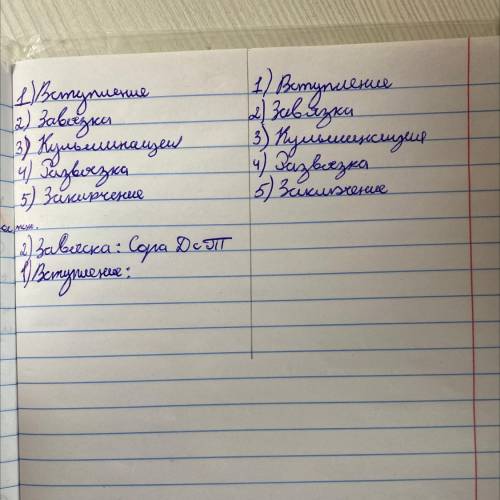 1) Вступление
2) Завязка
3) Кульминация
4) Развязка
5) Заключение
2) Завяска: Сора Д с Т
1) Вступление:
1) Вступление
2) Завязка
3) Кульминация
4) Развязка
5) Заключение